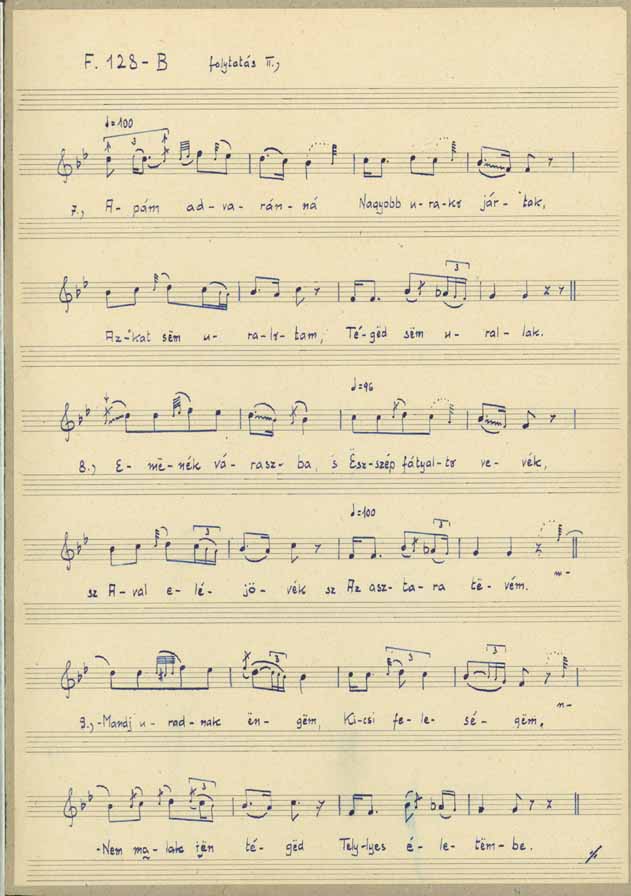 F. 128 - B folytatás II.,
♩=100
3
7., A- pám ad- va- rán- ná Nagyobb u- ra-kr jár- tak,
3
Az-kat sëm u- ra-lr-tam, Té-gëd sëm u- ral- lak.
♩=96
8., E- më-nék vá- rasz- ba, s Ësz-szép fátyal-tr ve- vék,
♩=100
3 3
sz A-val e- lé- jö- vék sz Az asz-ta- ra të- vém.
3 3 3
9.,-Mandj u- rad- nak ën- gëm, Ki-csi fe- le- sé- gëm,
3
-Nem ma- lak ijën té- gëd Tely-lyes é- le-tëm-be.